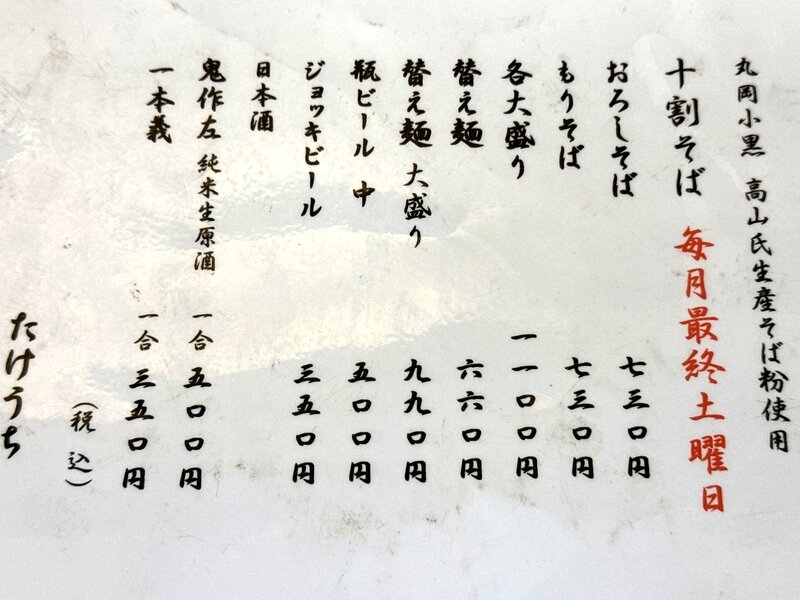 丸岡小黒 高山氏生産そば粉使用
十割そば 毎月最終土曜日
おろしそば 七三〇円
もりそば 七三〇円
各大盛り 一一〇〇円
替え麺 六六〇円
替え麺 大盛り 九九〇円
瓶ビール 中 五〇〇円
ジョッキビール 三五〇円
日本酒
鬼作左 純米生原酒 一合 五〇〇円
一本義 一合 三五〇円
（税込）
たけうち